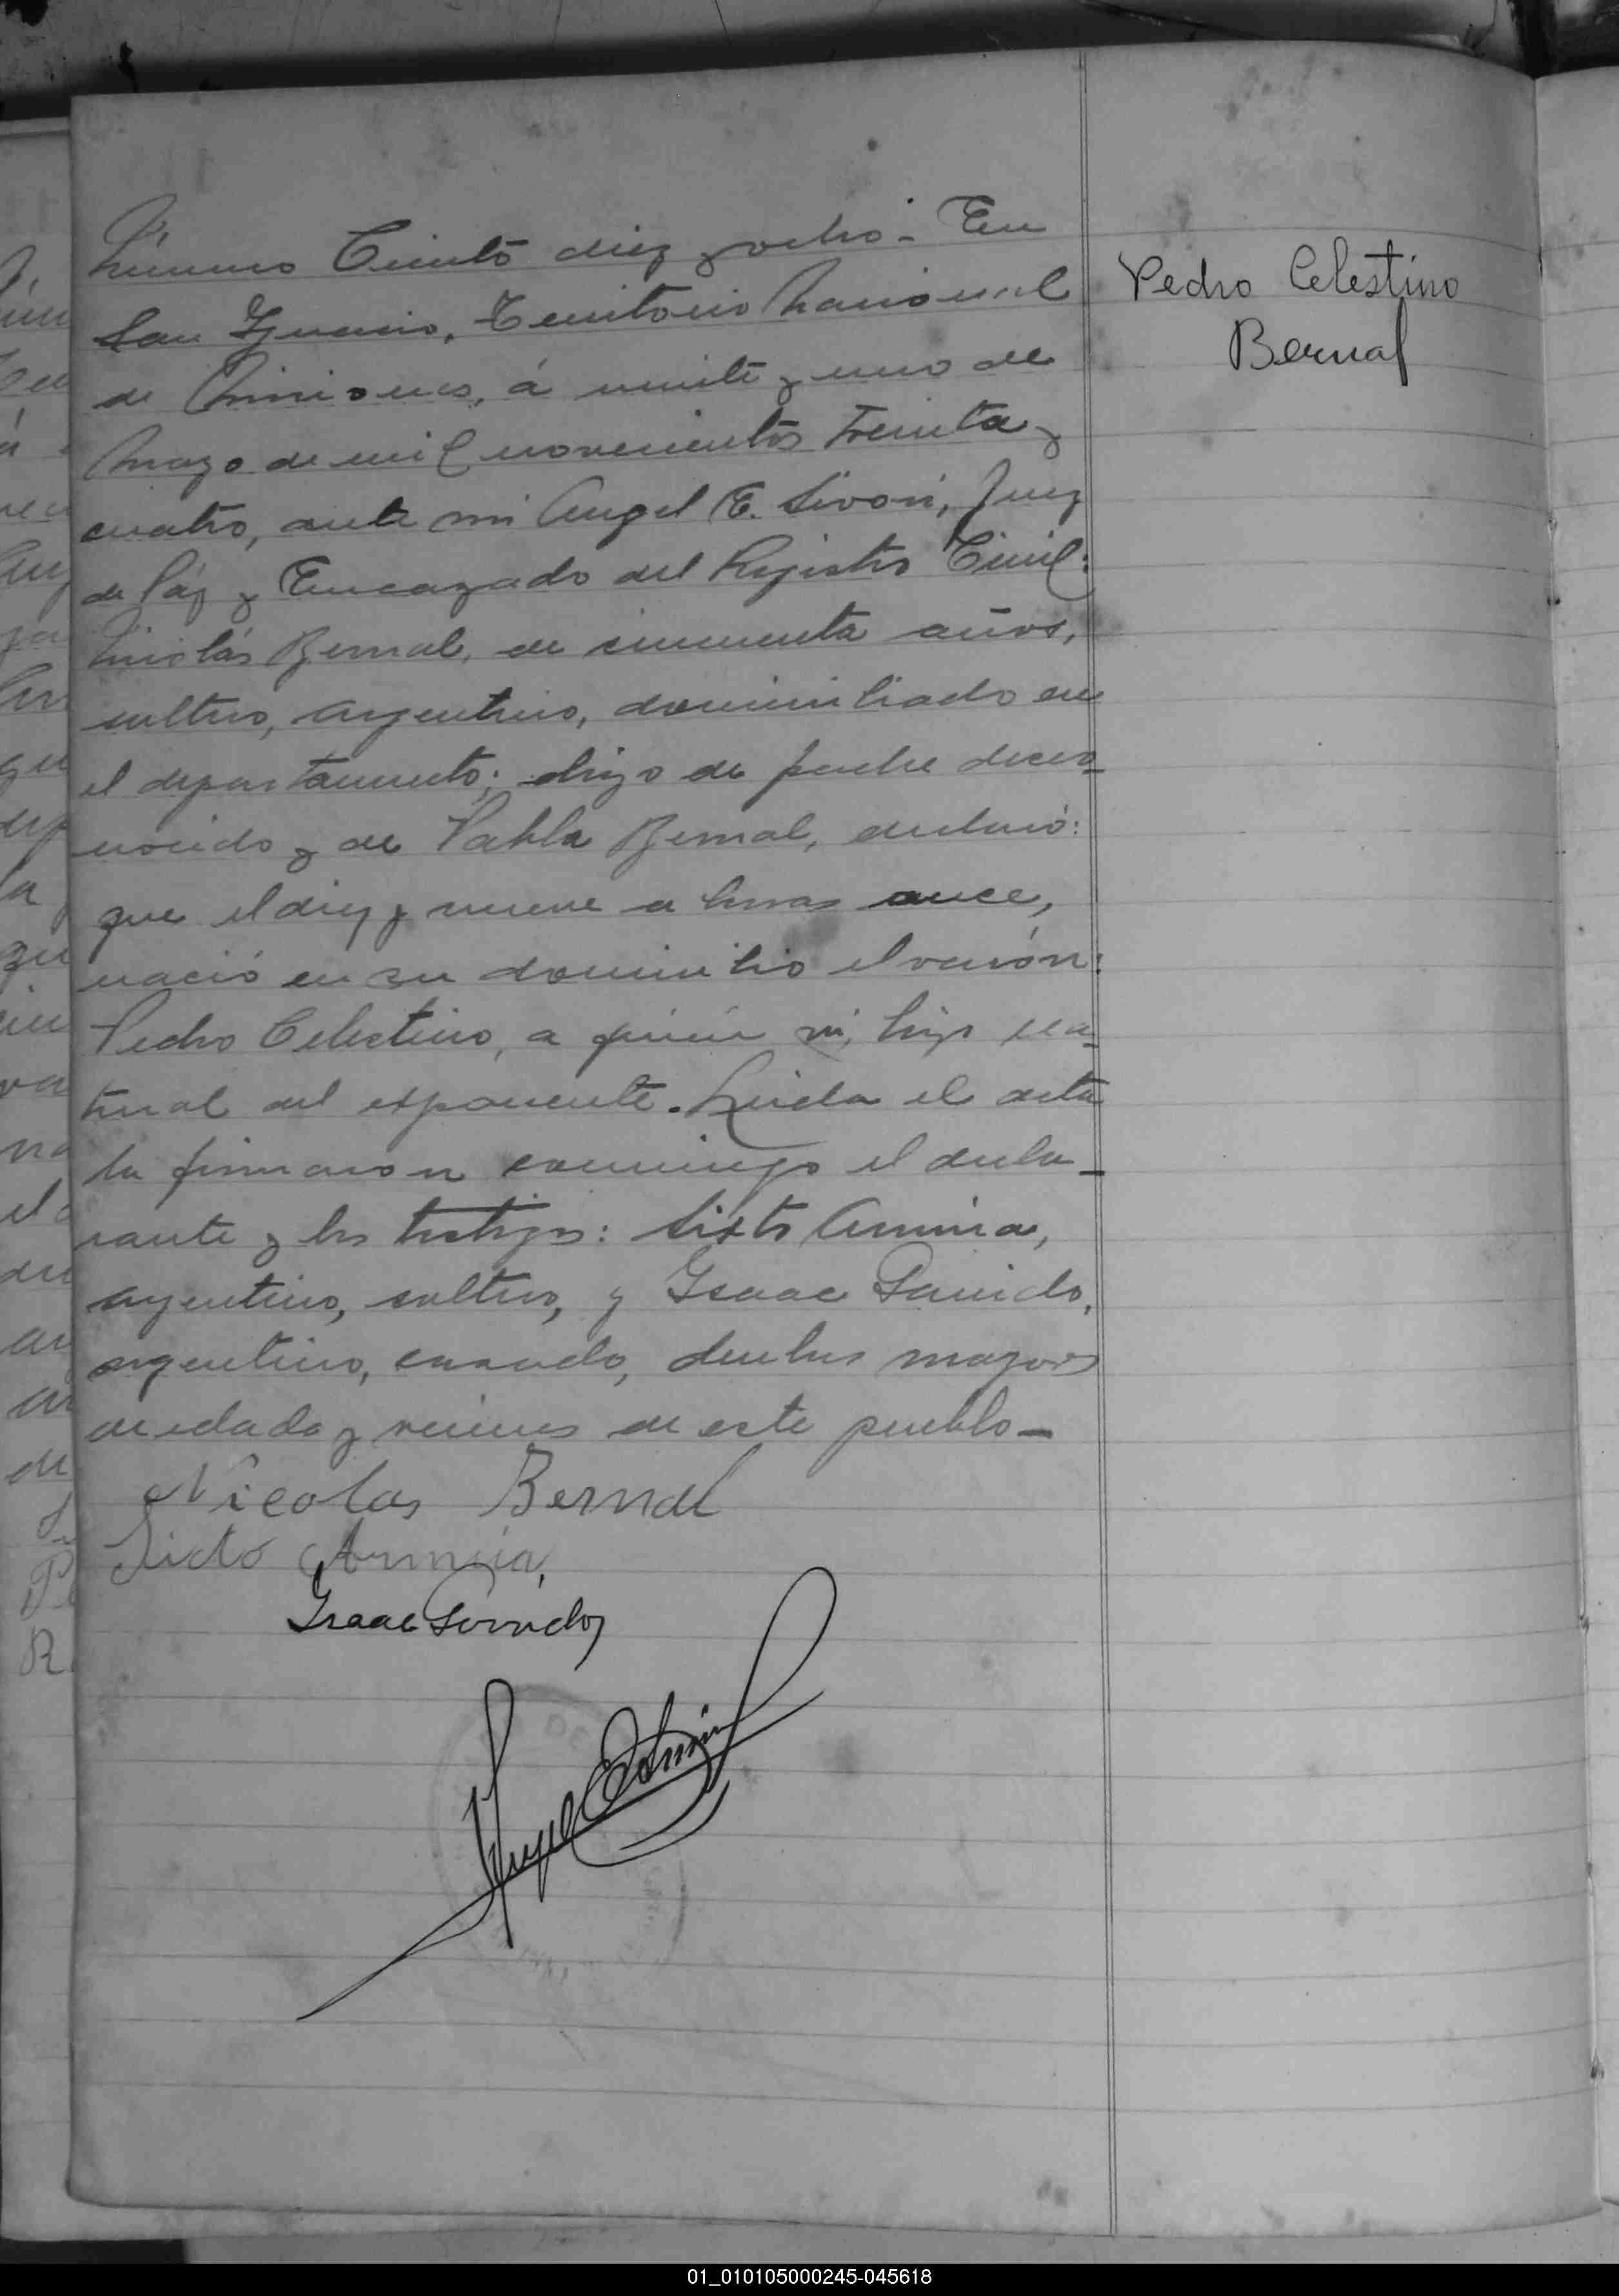 Número Ciento diez y ocho - En
San Ignacio, Territorio Nacional
de Misiones, á veinte y uno de
Mayo de mil novecientos treinta y
cuatro, ante mi Angel E. Sivori, Juez
de Páz y Encargado del Registro Civil:
Nicolás Bernal, de cincuenta años,
soltero, argentino, domiciliado en
el departamento; hijo de padre desco-
nocido y de Pabla Bernal, declaró:
que el diez y nueve a horas once,
nació en su domicilio el varón:
Pedro Celestino, a quien vi, hijo na-
tural del exponente. Leida el acta
la firmaron conmigo el decla-
rante y los testigos: Sixto
argentino, soltero, y Isaac
argentino, casado, ambos mayores
de edad y vecinos de este pueblo-
Nicolas Bernal
Sixto
Isaac
Angel E Sivori
Pedro Celestino
Bernal
01_010105000245-045618